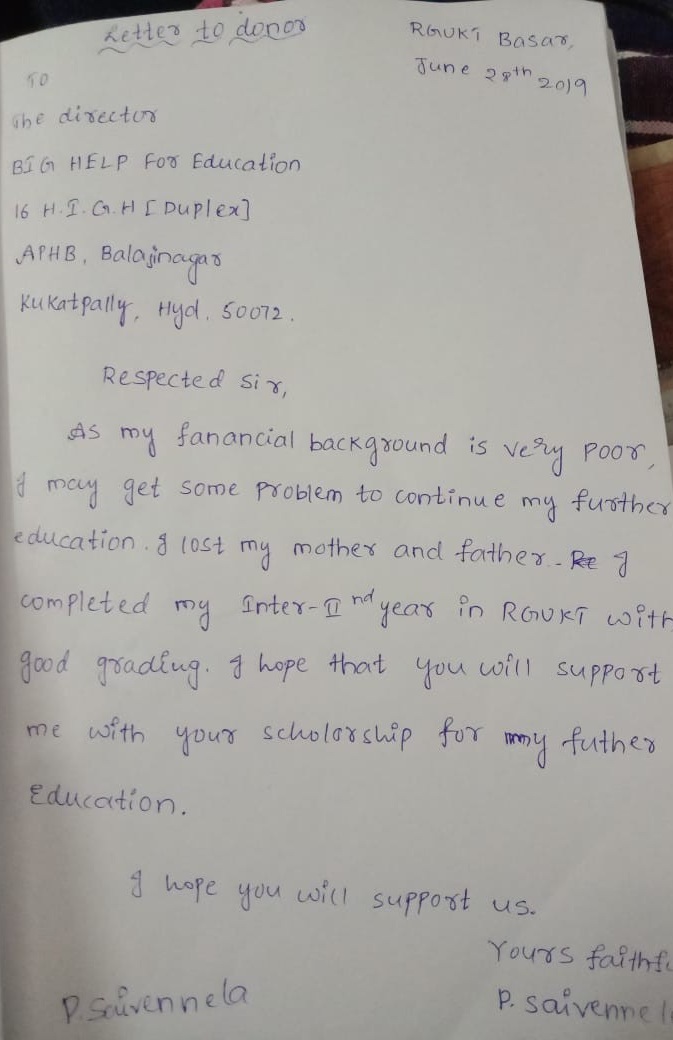 Letter to donor
RGUKT Basar,
June 28th 2019
To
The director
BIG HELP For Education
16 H.I.G.H [Duplex]
APHB, Balajinagar
Kukatpally, Hyd. 50072.
Respected Sir,
As my fanancial background is very poor,
I may get some problem to continue my further
education. I lost my mother and father. I
completed my Inter-II nd year in RGUKT with
good grading. I hope that you will support
me with your scholorship for my futher
Education.
I hope you will support us.
Yours faithfu
P. Saivennela
P. Saivennela